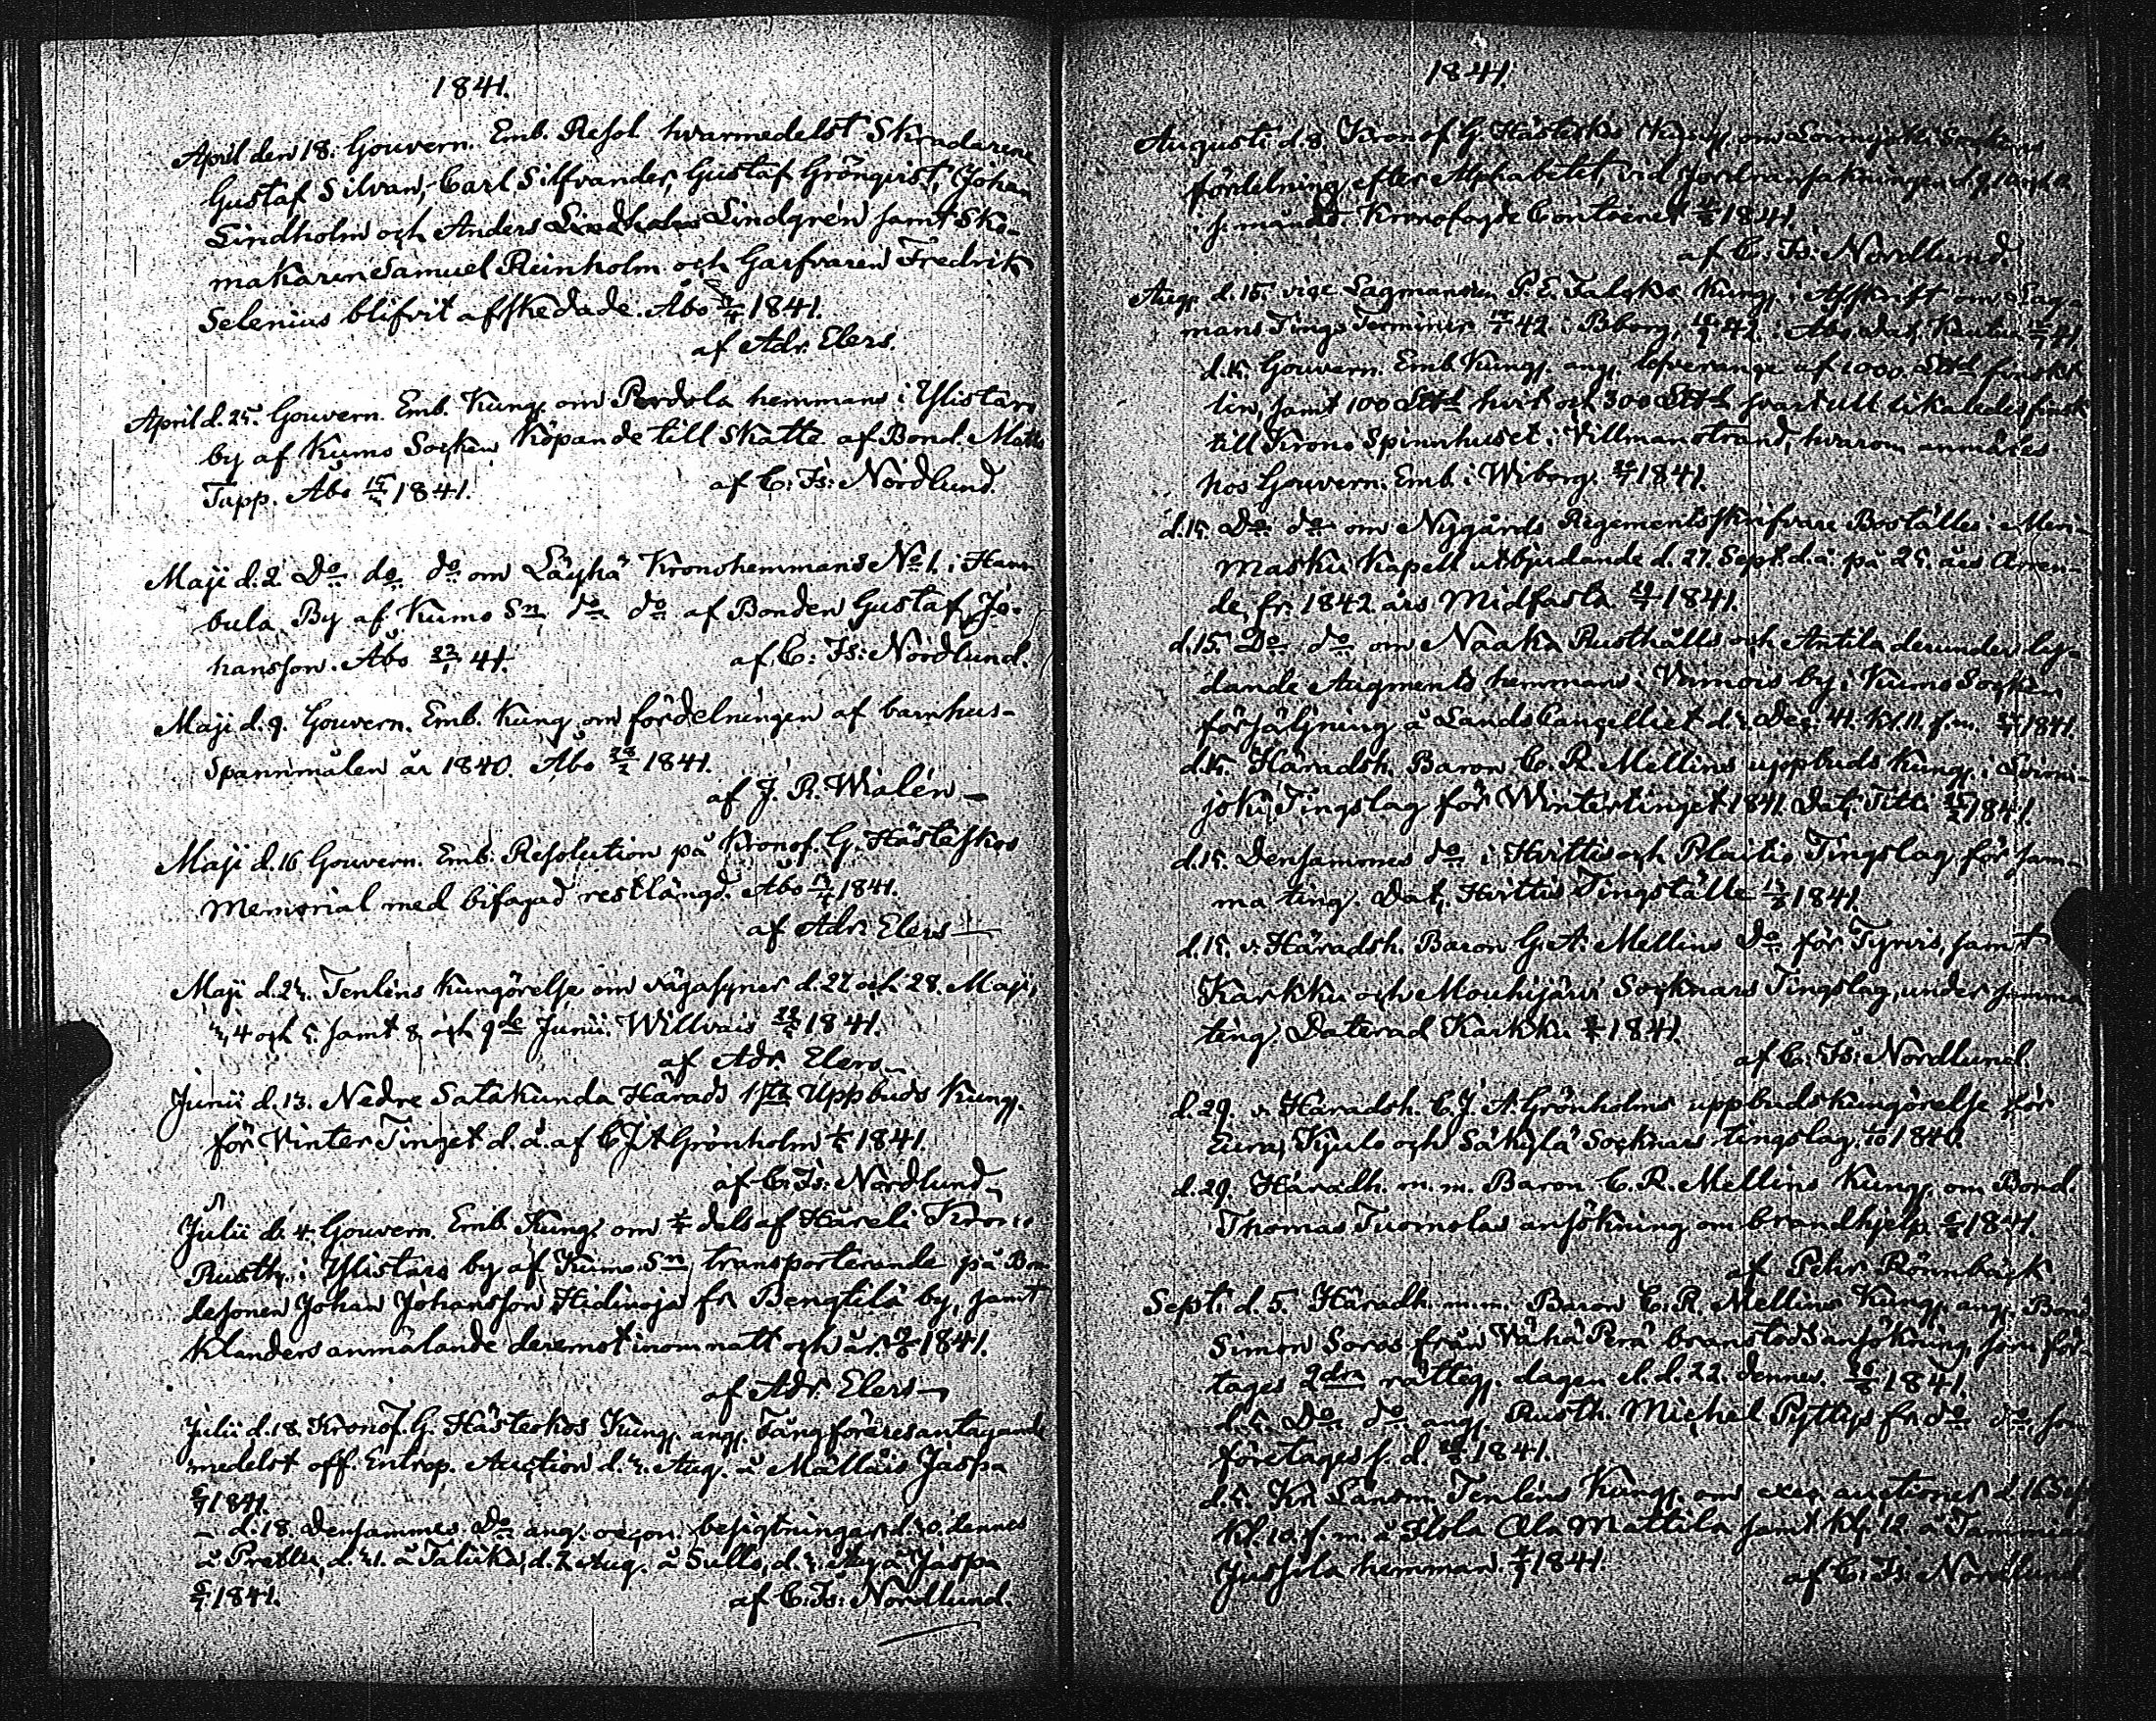 1841.
April den 18. Gouvern. Emb. Resol. hvarmedelst Skradarene
Gustaf Silvan, Carl Silfvander, Gustaf Grönqvist, Johan
Lindholm och Anders Lindholm Lindgrén samt Sko-
makaren Samuel Reinholm och Garfvaren Fredrik
Selenius blifvit afskedade. Åbo 1841.
af Adr. Elers.
April d. 25. Gouvern. Emb. Kung. om Pordola hemmans i Ylistaro
by af Kumo Socken Köpande till Skatte af Bond. Matts
Tapp. Åbo 15/4 1841.
af C: Fs: Nordlund.
Maji d. 2 Do do do om Läyhä Kronohemmans No 1. i Hann
bula By af Kumo Sn do do af Bonden Gustaf Jo-
hansson. Åbo 41.
af C: Fs: Nordlund.
Maji d. 9. Gouvern. Emb. Kung. om fördelningen af barnhus-
Spannmålen år 1840. Åbo 1841.
af J. R. Wialén
Maji d. 16 Gouvern. Emb. Resolution på Kronof. G. Hästeskos
Memorial med bifogad restlängd. Åbo 1841.
af Adr. Elers
Maji d. 24. Tenléns kungörelse om vägasyner d. 27 och 28. Maji,
3, 4 och 5. samt 8 och 9de Junii. Willvais 1841.
af Adr. Elers
Junii d. 13. Nedre Satakunda Härads 1sta Uppbuds Kung.
för Vinter Tinget d. å. af C J A Grönholm 1841.
af C: Fs: Nordlund
Julii d. 4. Gouvern. Emb. Kung. om dels af Hareli Krono
Rusth. i Ylistaro by af Kumo Sn transporterande på Bon-
desonen Johan Johansson Hidinoja fr. Bengtilä by, samt
klanders anmälande deremot inom natt och år. 1841.
af Adr. Elers
Julii d. 18. Kronof. G. Hästeskos Kung. ang. Fångföraresantagande
medelst off. Entrep. Auction d. 3. Aug. å Mällais Jaspa
1841.
d. 18. Densammes Do ang. besigtningar d. 30. dennes
å d. 31. å d. 2 Aug. å Sullo, d. 3. Aug. å Jaspa
1841.
af C: Fs: Nordlund.
1841.
Augusti d. 8. Kronof. G. Hästeskos Kung. om Loimijoki
fördelning efter Alphabetet vid Jordransakningen d. 9,
i s. månad. Kronofogde Contoiret 1841.
af C: Fs: Nordlund.
Aug. d. 15. vice Lagmannen P. E. Kung. i Afskrift om Lag-
mans Tings Terminer 42 i Bborg, 42 i Åbo. Dat. 41
d. 15. Gouvern. Emb. Kung. ang. lefverange af 1000 finskt
lin, samt 100 hvit och 300 svart ull likaledes finsk
till Krono Spinnhuset i Villmanstrand, hvarom anmäles
hos Gouvern. Emb. i Wiborg. 1841.
d. 15. Do do om Nygårds Regementsskrifvare Boställes i Meri-
masku Kapell utbjudande d. 27. Sept. d. å. på 25. års Arren-
de fr. 1842 års Midfasta. 1841.
d. 15. Do do om Naaka Rusthålls och Antila derunder ly-
dande Augments hemmans i by i Kumo Socken
försäljning å Lands Cancelliet d. Dec. 41. Kl. 11. f. m. 1841.
d. 15. Häradsh. Baron C. R. Mellins uppbuds Kung. i Loimi-
joki Tingslag för Wintertinget 1841. Dat. 1841.
d. 15. Densammes do i Hvittis och Tingslag för sam-
ma ting. Dat. Hvittis Tingställe 1841.
d. 15. v. Häradsh. Baron G. A. Mellins Do för Tyrvis, samt
Karkku och Mouhijärvi Socknars Tingslag, under samma
ting. Daterad Karkku 1841.
af C: Fs: Nordlund.
d. 29. v. Häradsh. C. J. A. Grönholms uppbudskungörelse för
Eura, Kjulo och Säkylä Socknars tingslag. 1840.
d. 29. Häradh. m. m. Baron C. R. Mellins Kung. om Bond.
Thomas Tuomolas ansökning om brandhjelp. 1841.
af Pehr Rönnbäck
Sept. d. 5. Häradh. m. m. Baron C. R. Mellins Kung. ang. Bond
Simon Soros från Vähä Perä branstodsansökning, som för-
tages 2dra rätteg. dagen el. d. 22. dennes. 1841.
d. 5. Do do ang. Rusth. Michel Pyttys fr. do do, som
företages s. d. 1841.
d. 5. Kr. Länsm. Tenléns Kung. om exec. auctioner d. 16 Sept
Kl. 10. f. m. å Flola Ala Mattila samt kl. 12 å
Jussila hemman. 1841.
af C: Fs: Nordlund